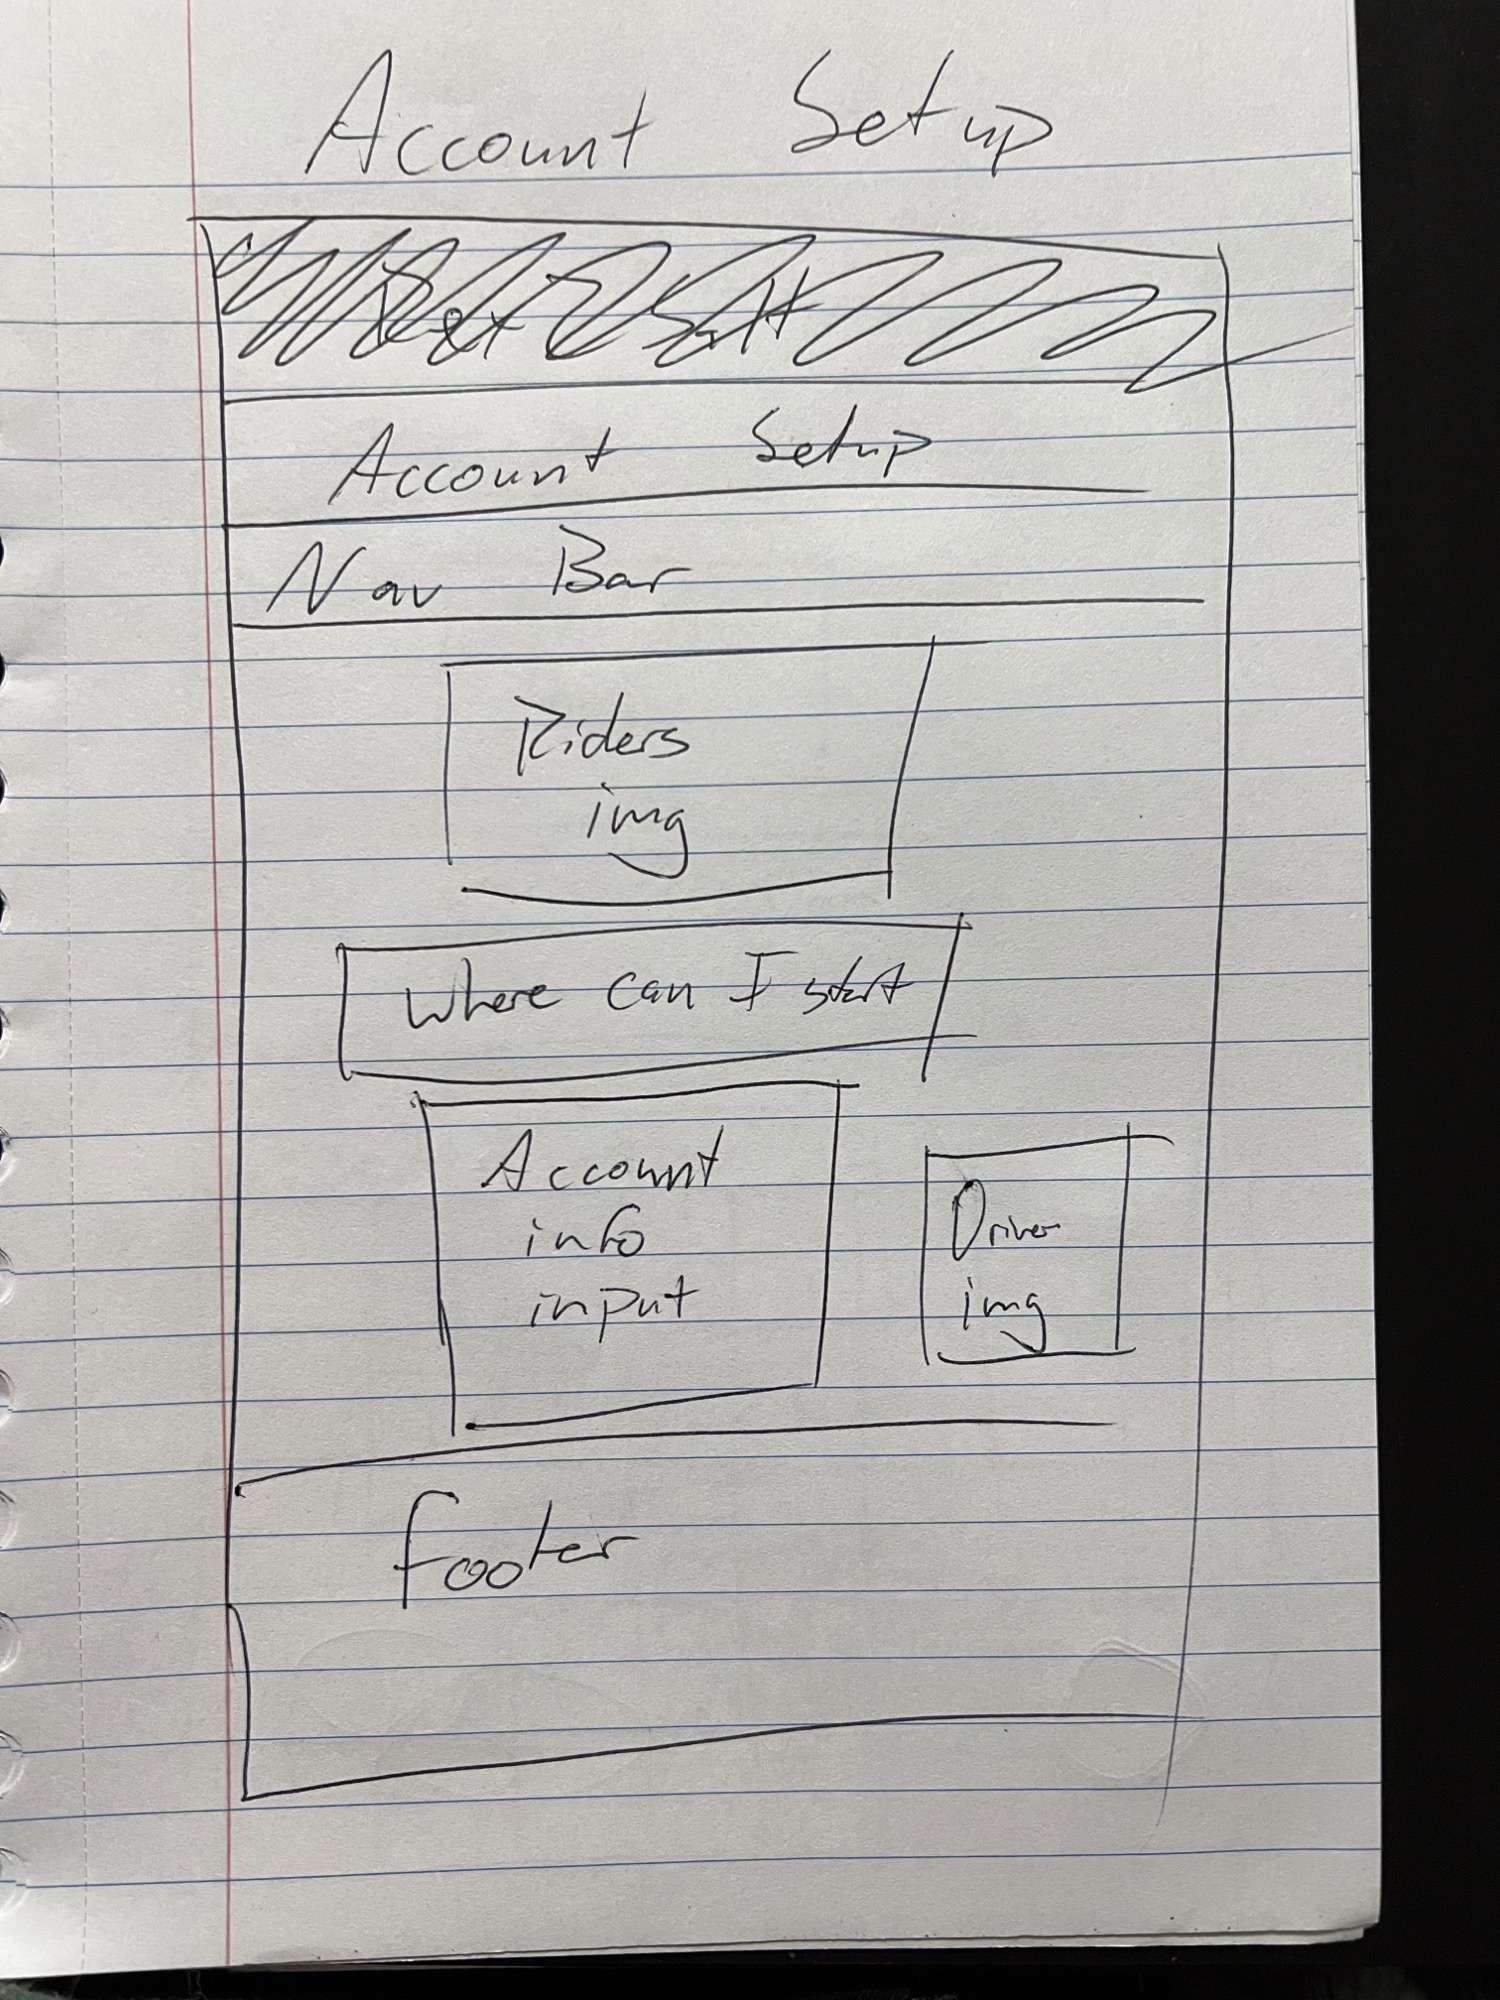 Account Setup
Account Setup
Nav Bar
Riders
img
Where can I start
Account
info
input
Driver
img
footer